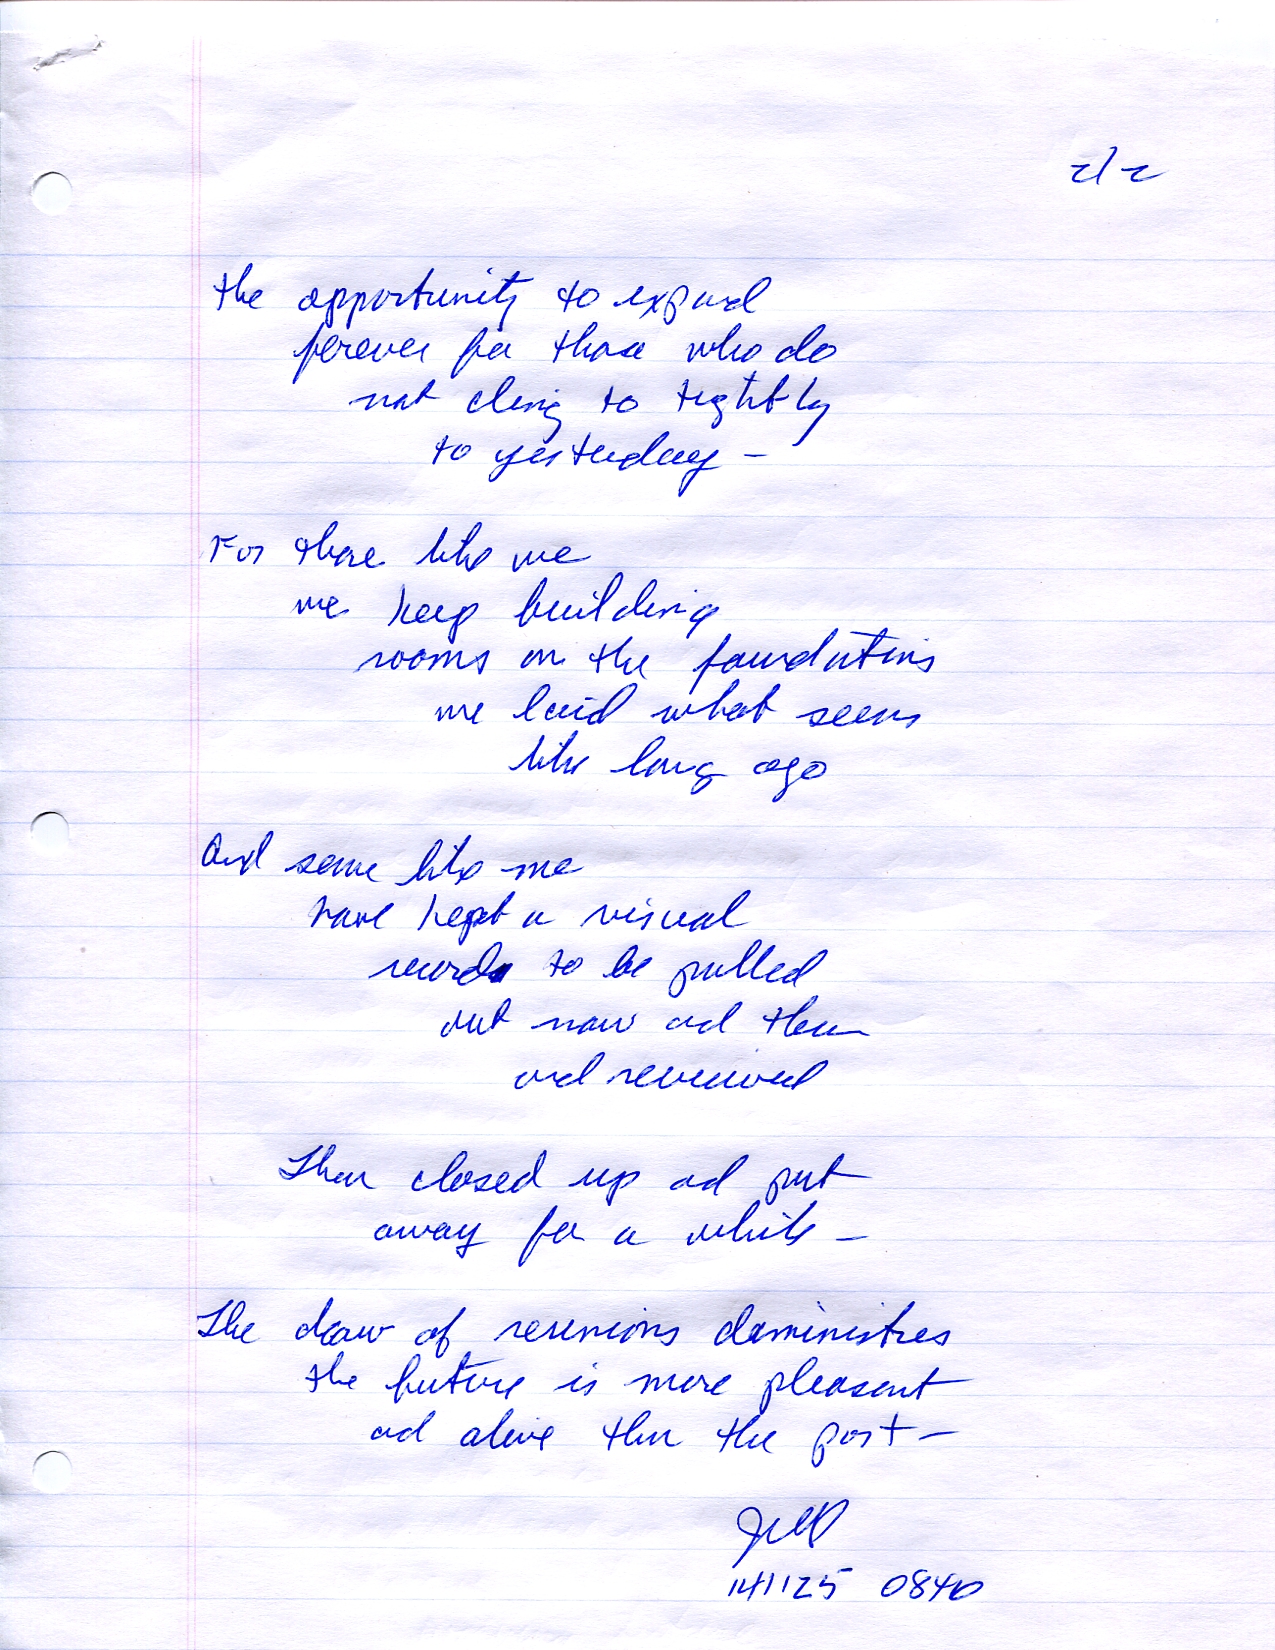 2/2
the opportunity to expand
forever for those who do
not cling to tightly
to yesterday –
For those like me
we keep building
rooms on the foundations
we laid what seems
like long ago
And some like me
have kept a visual
record to be pulled
out now and then
and reviewed
Then closed up and put
away for a while –
The draw of reunions diminishes
the future is more pleasant
and alive than the past –
141125 0840